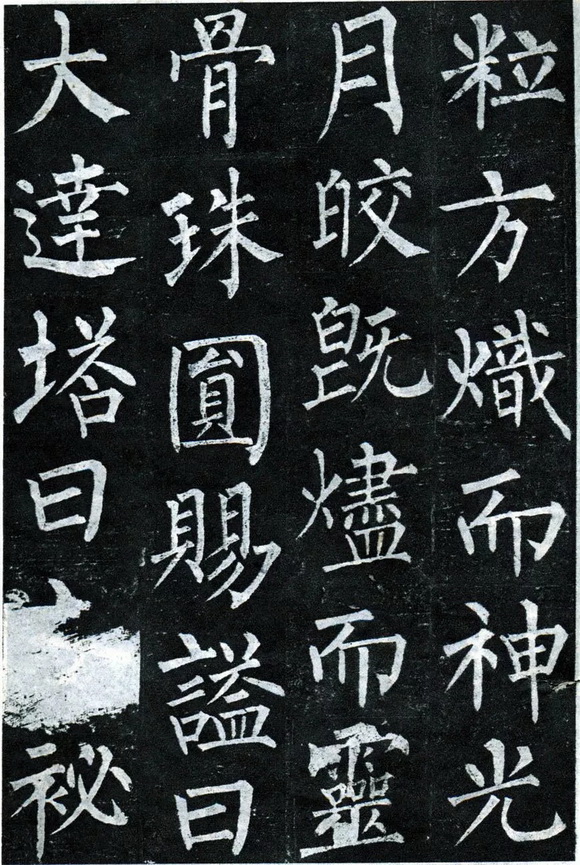 粒方熾而神光
月皎既燼而靈
骨珠圓賜謚曰
大達塔曰祕